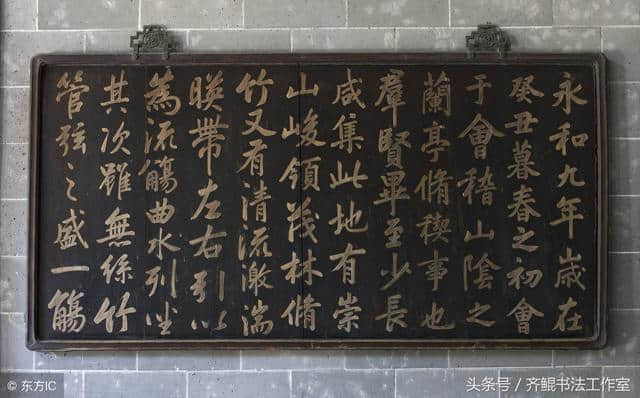 永和九年歲在
癸丑暮春之初會
于會稽山陰之
蘭亭脩稧事也
羣賢畢至少長
咸集此地有崇
山峻領茂林脩
竹又有清流激湍
暎帶左右引以
為流觴曲水列坐
其次雖無絲竹
管弦之盛一觴
© 东方IC
头条号 / 齐鲲书法工作室